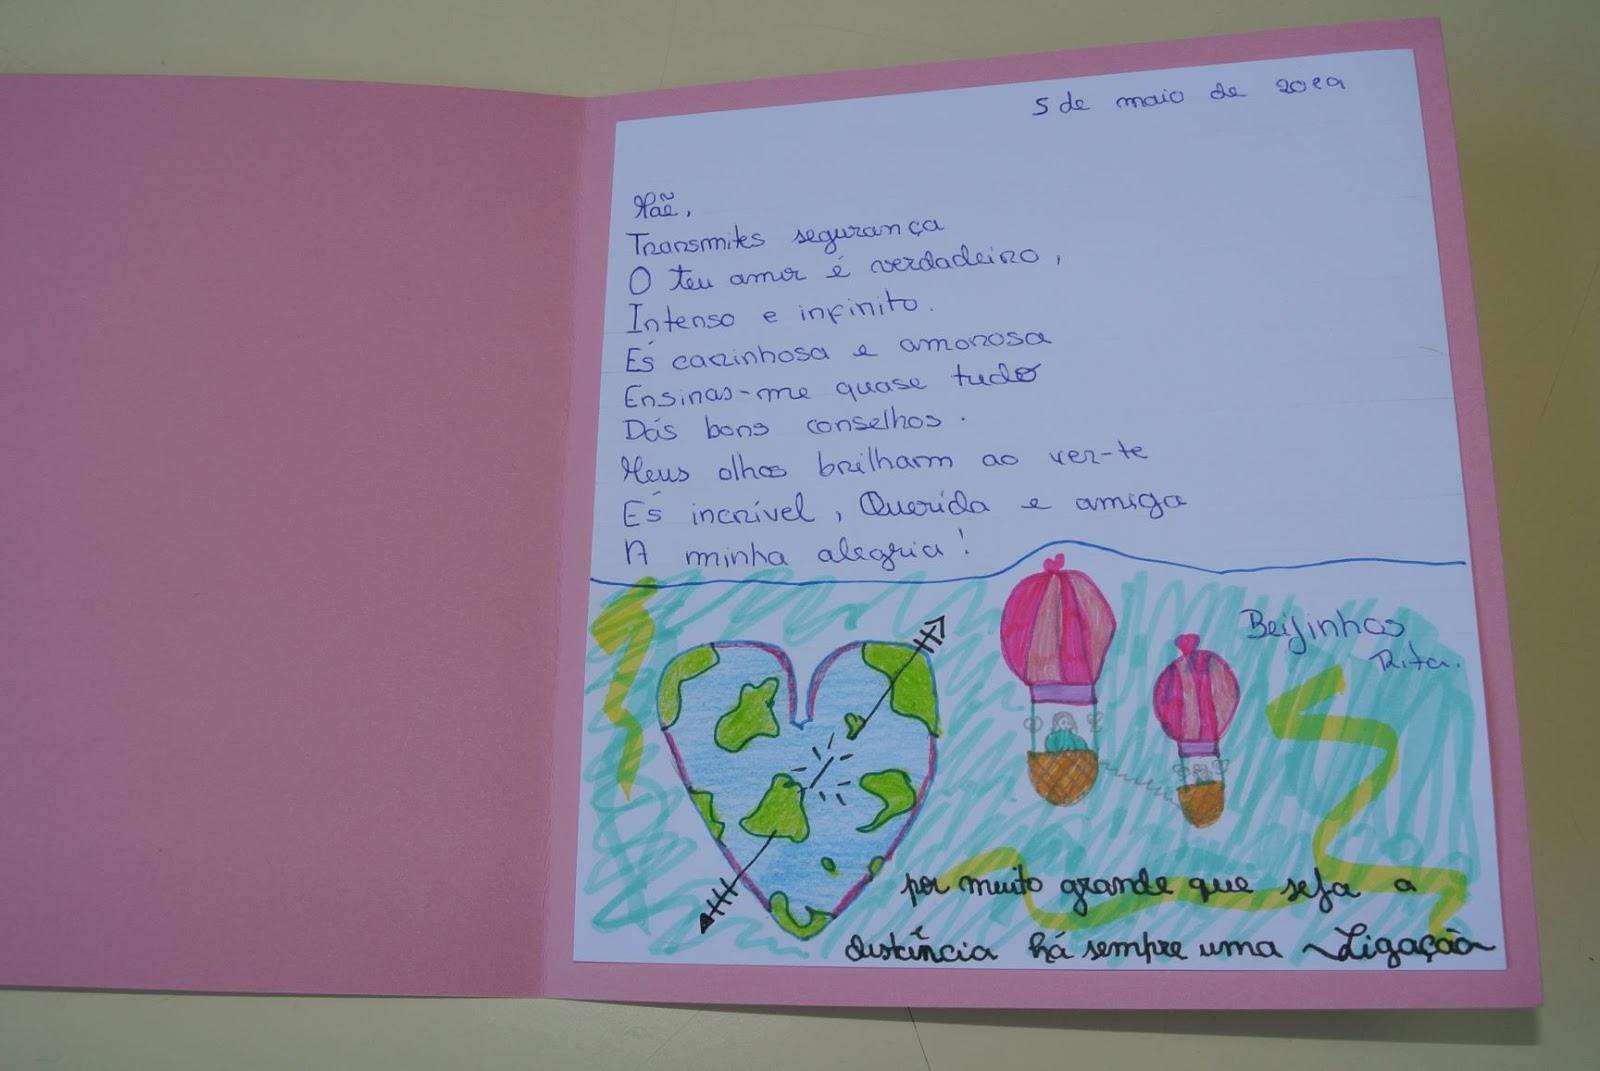 5 de maio de 2019
Mãe,
Transmites segurança
O teu amor é verdadeiro,
Intenso e infinito.
És carinhosa e amorosa
Ensinas-me quase tudo
Dás bons conselhos.
Meus olhos brilham ao ver-te
És incrível, Querida e amiga
A minha alegria!
Beijinhos
Rita.
por muito grande que seja a
distância há sempre uma Ligação